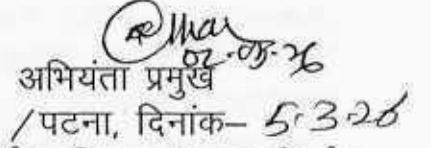 02-03-26
अभियंता प्रमुख
/पटना, दिनांक– 5.3.26